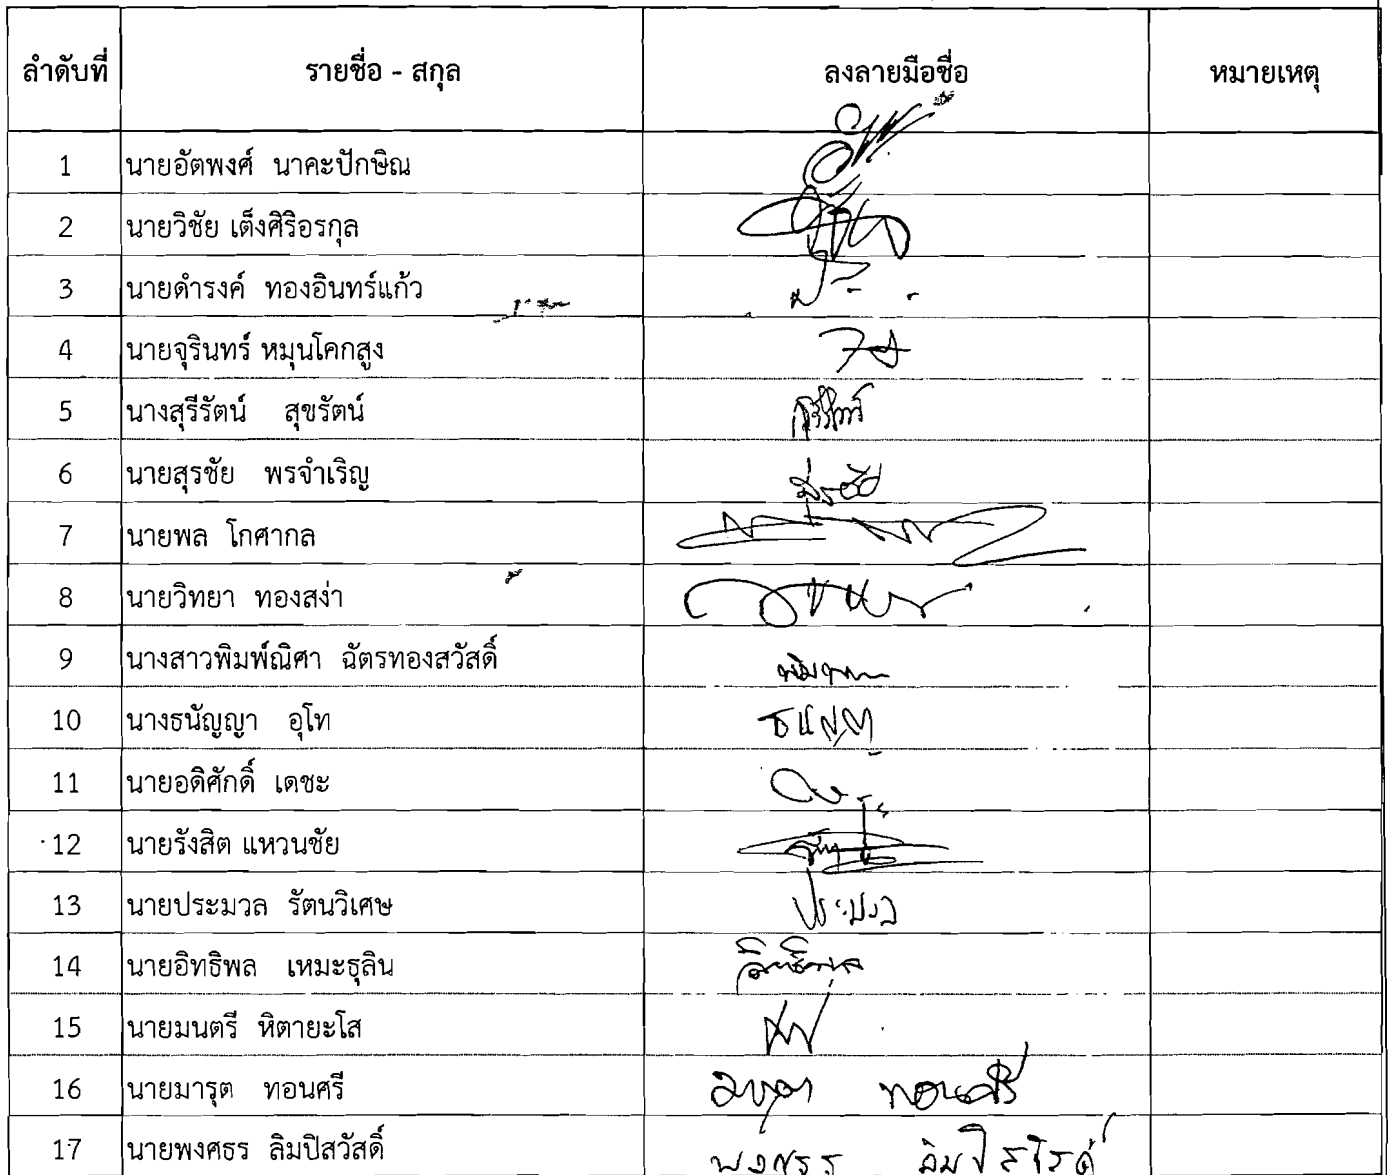 ลำดับที่ รายชื่อ - สกุล ลงลายมือชื่อ หมายเหตุ
1 นายอัตพงศ์ นาคะปักษิณ
2 นายวิชัย เต็งศิริอรกุล
3 นายดำรงค์ ทองอินทร์แก้ว
4 นายจุรินทร์ หมุนโคกสูง
5 นางสุรีรัตน์ สุขรัตน์ สุรีรัตน์
6 นายสุรชัย พรจำเริญ สุรชัย
7 นายพล โกศากล
8 นายวิทยา ทองสง่า
9 นางสาวพิมพ์ณิศา ฉัตรทองสวัสดิ์
10 นางธนัญญา อุโท ธนัญญา
11 นายอดิศักดิ์ เดชะ
12 นายรังสิต แหวนชัย
13 นายประมวล รัตนวิเศษ ประมวล
14 นายอิทธิพล เหมะธุลิน อิทธิพล
15 นายมนตรี หิตายะโส
16 นายมารุต ทอนศรี มารุต ทอนศรี
17 นายพงศธร ลิมปิสวัสดิ์ พงศธร